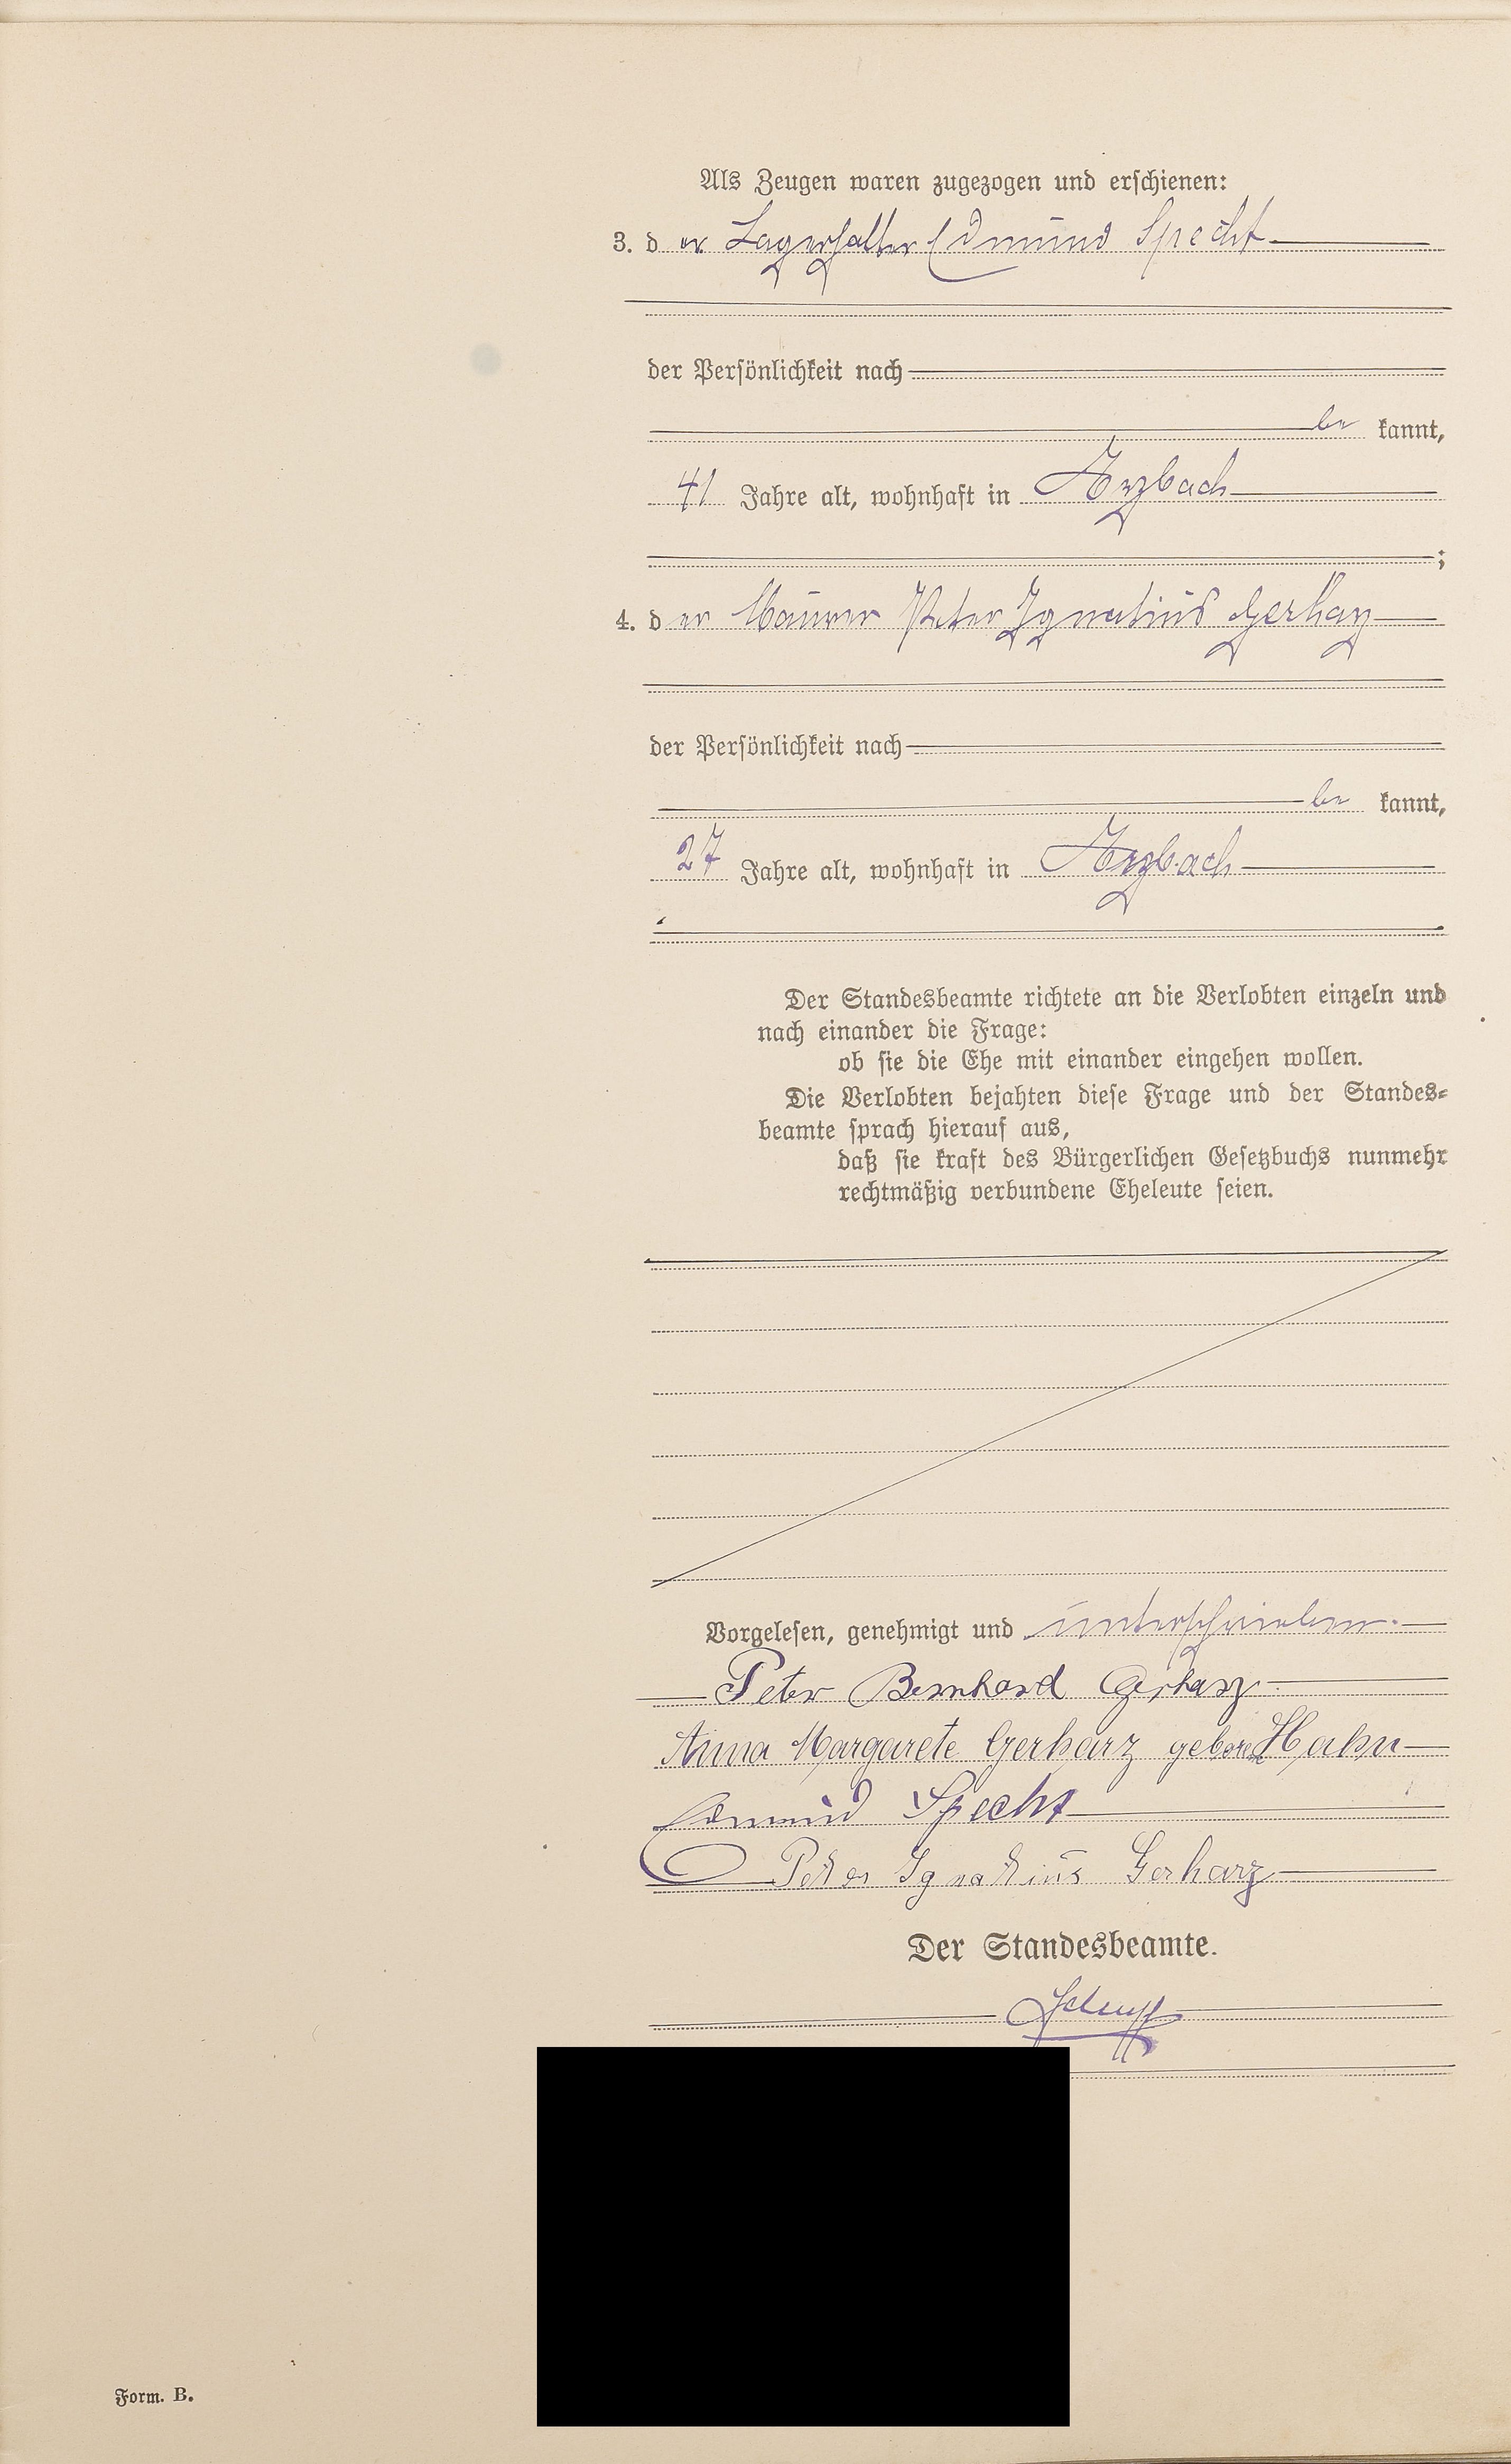 Als Zeugen waren zugezogen und erschienen:
3. d er Lagerhalter Edmund Specht
der Persönlichkeit nach
be kannt,
41 Jahre alt, wohnhaft in Arzbach
;
4. d er Maurer Peter Ignatius Gerharz
der Persönlichkeit nach
be kannt,
27 Jahre alt, wohnhaft in Arzbach
Der Standesbeamte richtete an die Verlobten einzeln und
nach einander die Frage:
ob sie die Ehe mit einander eingehen wollen.
Die Verlobten bejahten diese Frage und der Standes-
beamte sprach hierauf aus,
daß sie kraft des Bürgerlichen Gesetzbuchs nunmehr
rechtmäßig verbundene Eheleute seien.
Vorgelesen, genehmigt und unterschrieben.
Peter Bernhard Gerharz
Anna Margarete Gerharz geborene Hahn
Edmund Specht
Peter Ignatius Gerharz
Der Standesbeamte.
Form. B.